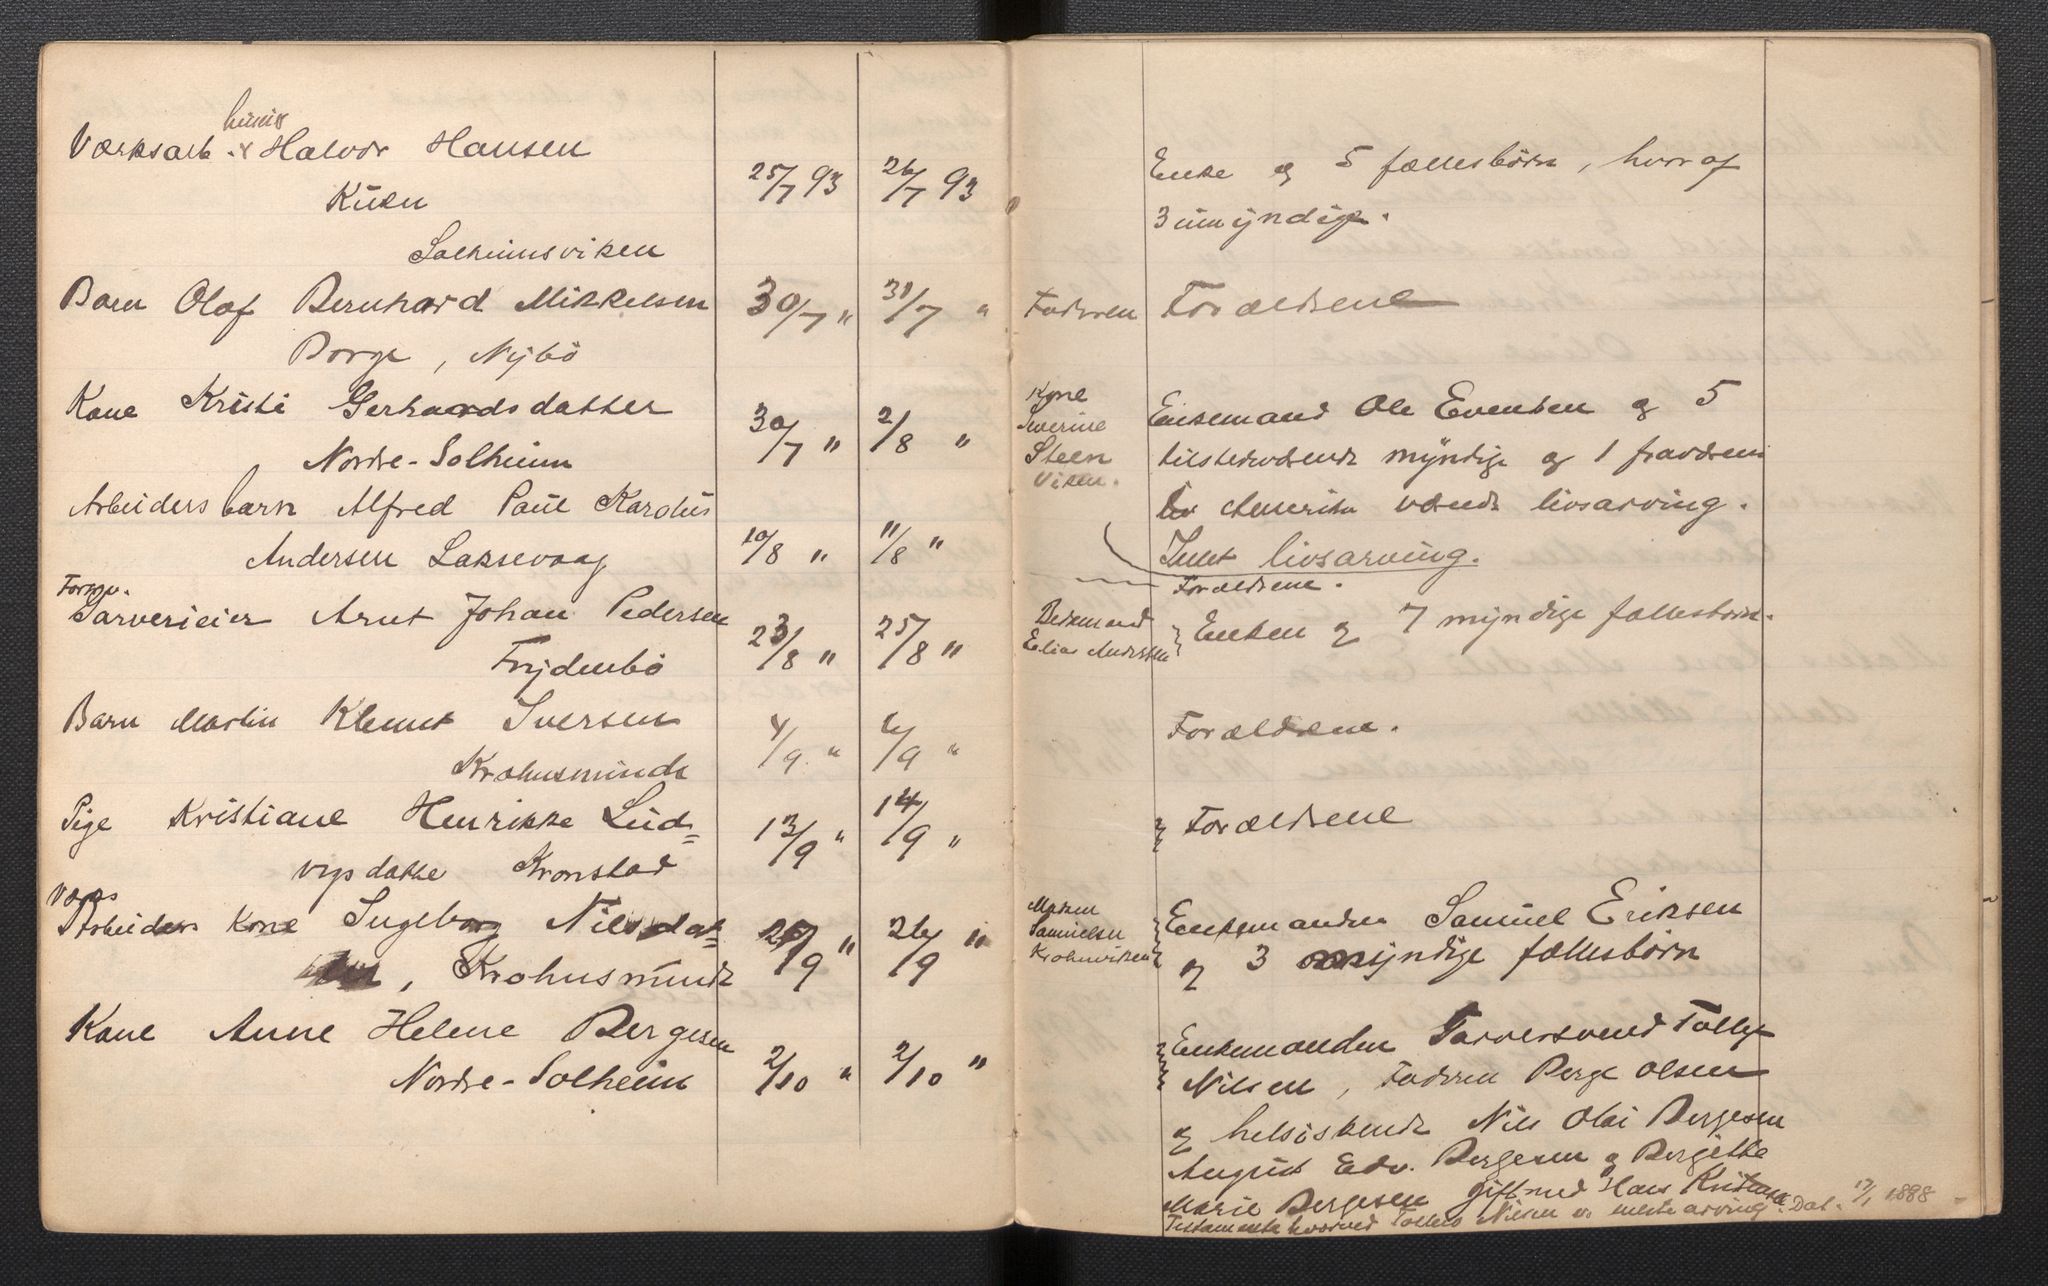 Værksarb. Halvor Hansen
25/7 93 26/7 93
Solheimsviken
Enke og 5 fællesbørn, hvoraf
3 umyndige.
Barn Olaf Bernhard Mikkelsen
30/7 " 31/7 "
Borge, Nybö
Faderen Forældrene
Kone Kristi Gerhardsdatter
30/7 " 2/8 "
Nordre-Solheim
Kone
Severine
Steen
Viken.
Enkemand Ole Evensen og 5
tilstedværende myndige og 1 fraværende
i Amerika værende livsarving.
Intet livsarving.
Arbeiders barn Alfred Paul Karolus
Andersen Laksevaag
10/8 " 11/8 "
Forældrene.
Forhv.
Garverieier Arnt Johan Pedersen
Frydenbö
23/8 " 25/8 "
Bedemand
Elias Andersen
Enken og 7 myndige fællesbørn.
Barn Martin Klemet Iversen
Krohnsminde
4/9 " 6/9 "
Forældrene.
Pige Kristiane Henrikke Lud=
vigsdatter Kronstad
13/9 " 14/9 "
Forældrene
Værks
Arbeiders Kone Ingeborg Nilsdat=
ter, Krohnsminde
25/9 " 26/9 "
Samuelsen
Krohnviken
Enkemanden Samuel Eriksen
og 3 myndige fællesbørn
Kone Anne Helene Bergesen
Nordre-Solheim
2/10 " 2/10 "
Enkemanden Garversvend Tollef
Nilsen, Faderen Berge Olsen
og helsöskende Nils Olai Bergesen
August Edv. Bergesen og Bergitte
Marie Bergesen gift med Hans Kristiansen
Testamente hvorved Tollef Nilsen er eneste arving. Dat. 17/1 1888